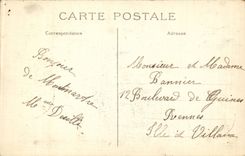 CARTE POSTALE
Correspondance
Adresse
Bonjour
de Montmartre
Monsieur et Madame
Pannier
12 Boulevard de Guines
Rennes
Ille et Vilaine